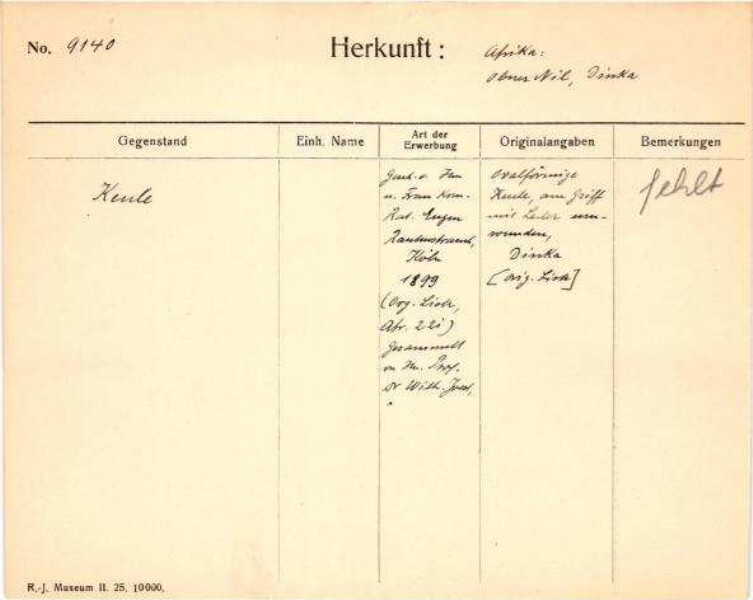 No. 9140
Herkunft:
Afrika:
Oberer Nil, Dinka
Gegenstand
Einh. Name
Art der Erwerbung
Originalangaben
Bemerkungen
Keule
Gesch. v. Herrn
u. Frau Kom.
Rat. Eugen
Rautenstrauch,
Köln
1899
(Org. Liste,
Afr. 22i)
Gesammelt
von Hn. Prof.
Dr Wilh. Joest,
Ovalförmige
Keule, am Griff
mit Leder um-
wunden,
Dinka
[orig. Liste]
fehlt
R.-J. Museum II. 25. 10000.